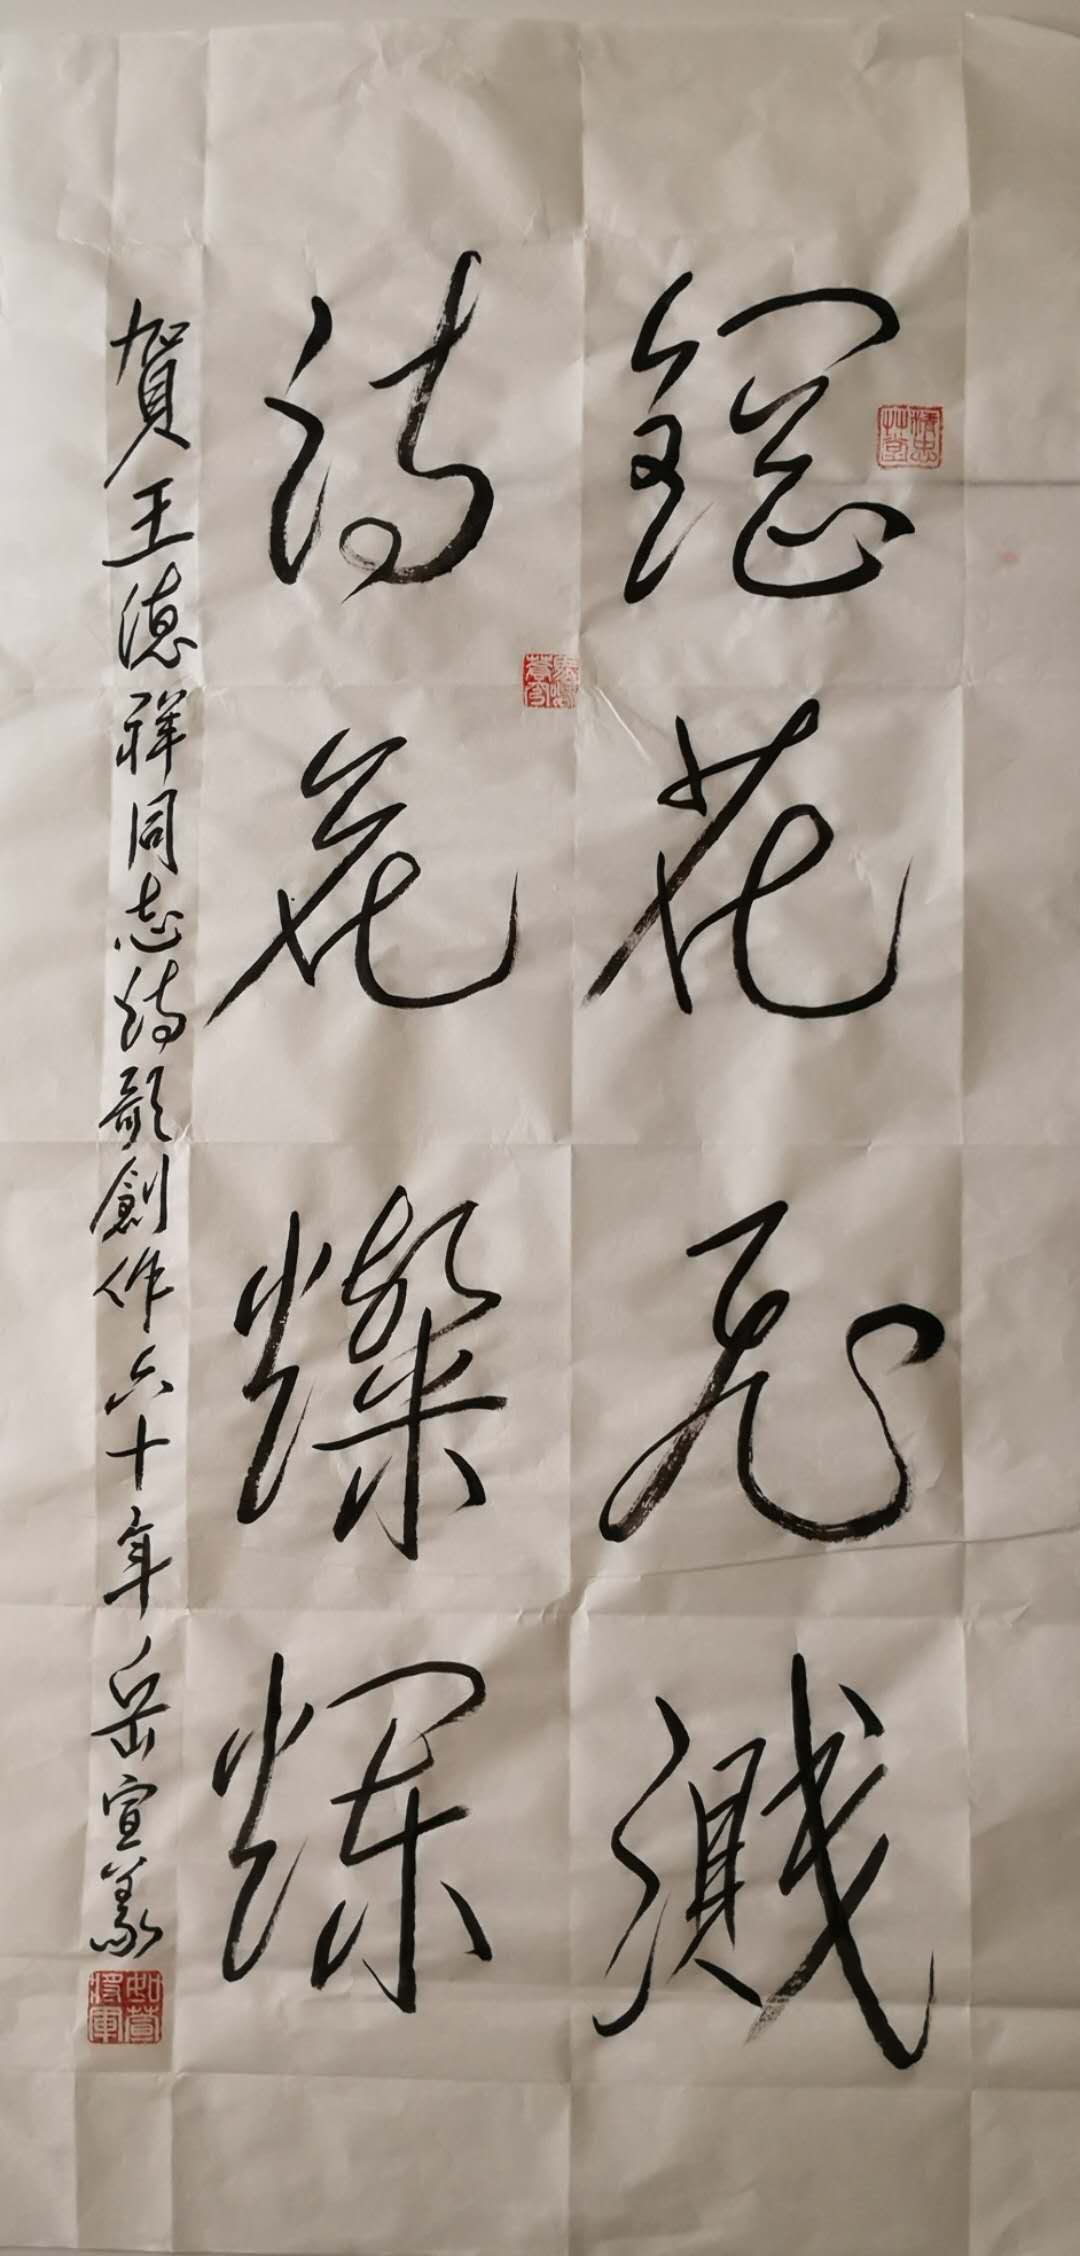 鋼花飛濺
詩花燦爛
賀王德祥同志詩歌創作六十年岳宣義